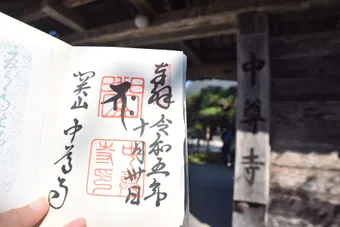 奉拝
令和五年
十月卅日
関山
中尊寺
中尊寺